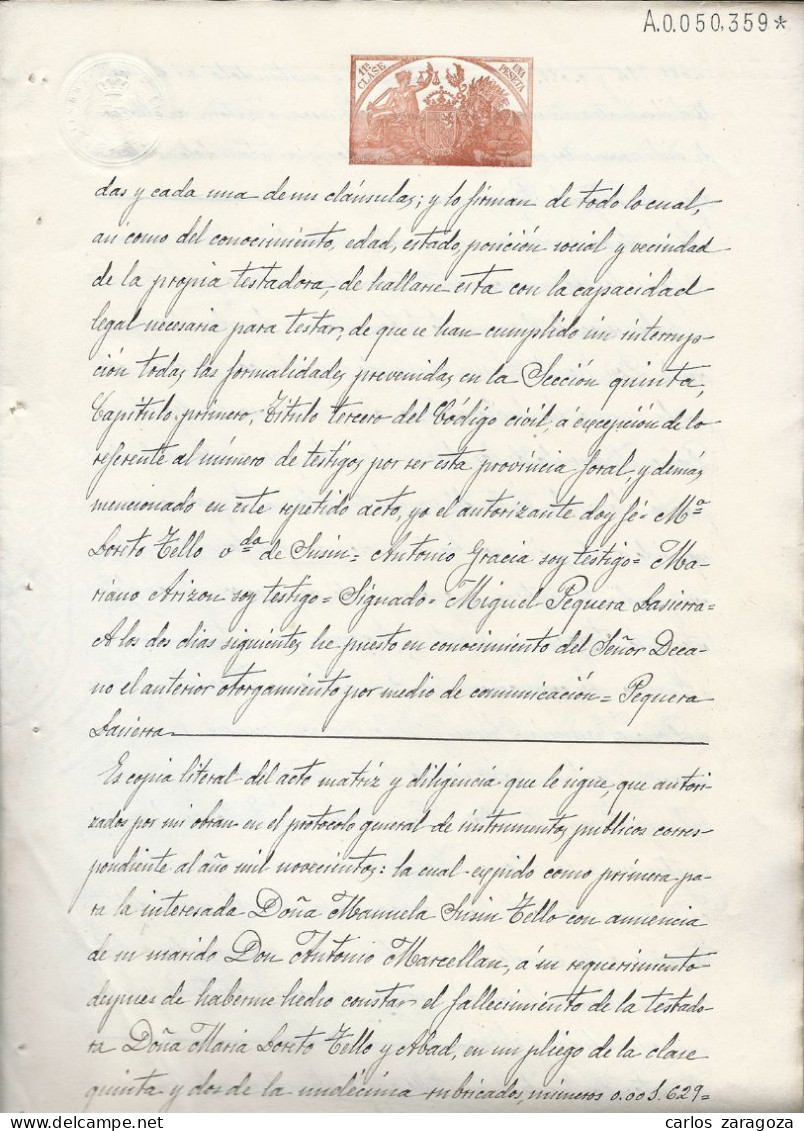 A.0.050,359*
11ª CLASE
UNA PESETA
das y cada una de sus cláusulas; y lo firman de todo lo cual,
así como del conocimiento, edad, estado, posición social y vecindad
de la propia testadora, de hallarse esta con la capacidad
legal necesaria para testar, de que se han cumplido sin interrup-
ción todas las formalidades prevenidas en la Sección quinta,
Capítulo primero, Título tercero del Código civil, á excepción de lo
referente al número de testigos por ser esta provincia foral, y demás
mencionado en este repetido acto, yo el autorizante doy fé= Mª
Loreto Tello vda de Susin= Antonio Gracia soy testigo= Ma-
riano Arizon soy testigo= Signado= Miguel Pequera Lasierra=
A los dos dias siguientes he puesto en conocimiento del Señor Deca-
no el anterior otorgamiento por medio de comunicación= Pequera
Lasierra
Es copia literal del acto matriz y diligencia que le sigue, que autori-
zados por mi obran en el protocolo general de instrumentos publicos corres-
pondiente al año mil novecientos: la cual expido como primera pa-
ra la interesada Doña Manuela Susin Tello con anuencia
de su marido Don Antonio Marcellan, á su requerimiento
depues de haberme hecho constar el fallecimiento de la testado-
ra Doña Maria Loreto Tello y Abad, en un pliego de la clase
quinta y dos de la undécima rubricados, números 0.005.629=
carlos zaragoza